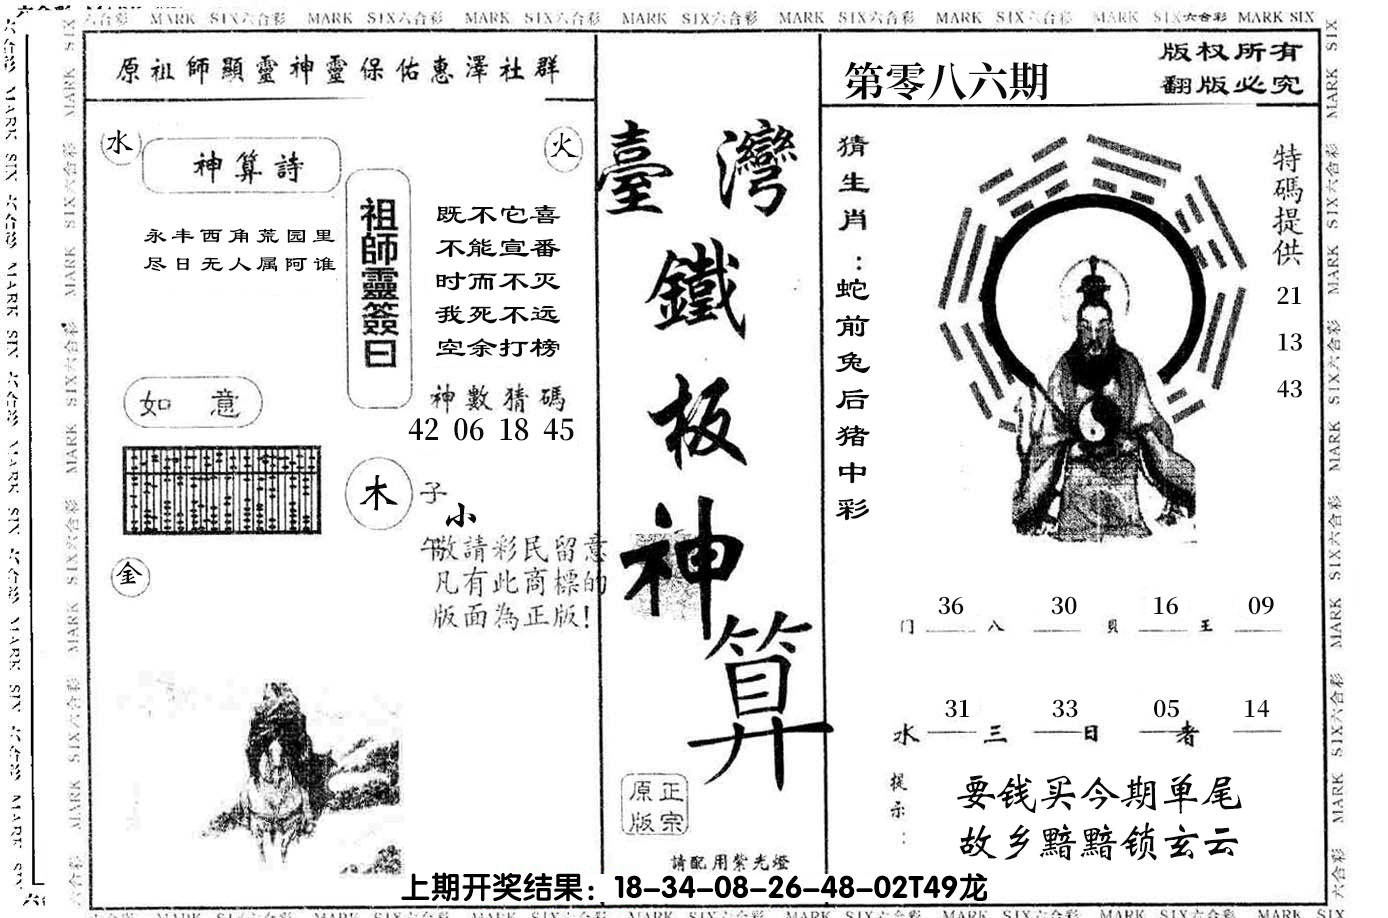 原祖師顯靈神靈保佑惠澤社群
水
神算詩
火
永丰西角荒园里
尽日无人属阿谁
祖師靈簽曰
既不它喜
不能宣番
时而不灭
我死不远
空余打榜
如意
神數猜碼
42 06 18 45
木
子
小
午
敬請彩民留意
凡有此商標的
版面為正版!
金
臺灣
鐵
板
神
算
正宗
原版
請配用紫光燈
第零八六期
版权所有
翻版必究
猜生肖:蛇前兔后猪中彩
特碼提供
21
13
43
36 30 16 09
门 八 貝 王
31 33 05 14
水 三 日 者
提示:
要钱买今期单尾
故乡黯黯锁玄云
上期开奖结果：18-34-08-26-48-02T49龙
MARK SIX六合彩 MARK SIX六合彩 MARK SIX六合彩 MARK SIX六合彩 MARK SIX六合彩 MARK SIX六合彩 MARK SIX六合彩 MARK SIX